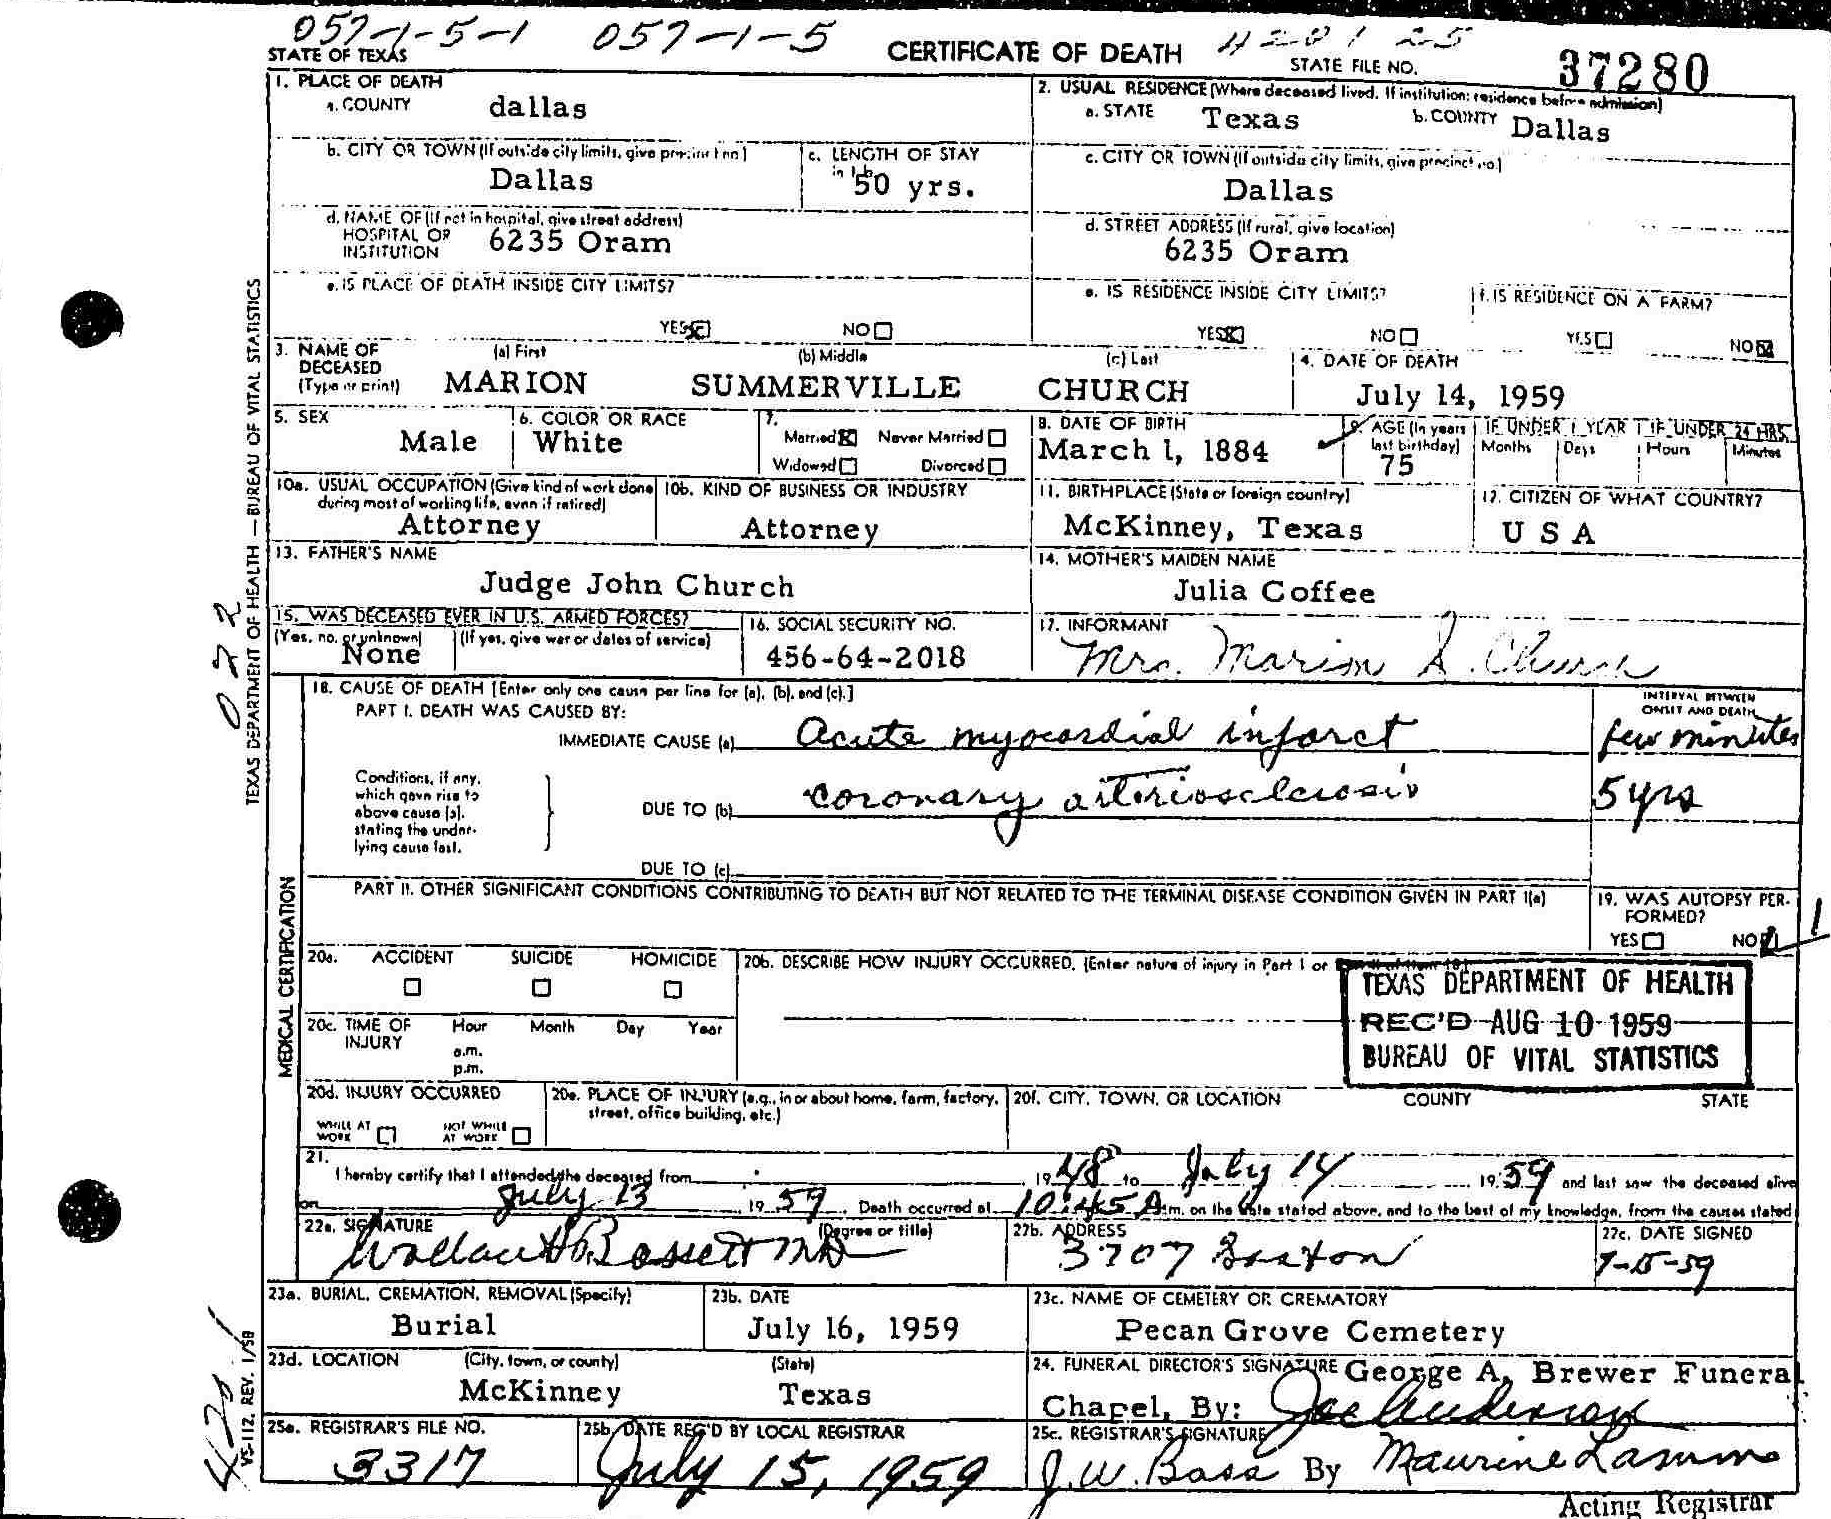 057-1-5-1 057-1-5 420125
STATE OF TEXAS CERTIFICATE OF DEATH STATE FILE NO. 37280
1. PLACE OF DEATH
a. COUNTY dallas
2. USUAL RESIDENCE (Where deceased lived. If institution: residence before admission)
a. STATE Texas b. COUNTY Dallas
b. CITY OR TOWN (If outside city limits, give precinct no.) Dallas
c. LENGTH OF STAY in 1b 50 yrs.
c. CITY OR TOWN (If outside city limits, give precinct no.)
Dallas
d. NAME OF (If not in hospital, give street address)
HOSPITAL OR
INSTITUTION 6235 Oram
d. STREET ADDRESS (If rural, give location)
6235 Oram
e. IS PLACE OF DEATH INSIDE CITY LIMITS?
YES NO
e. IS RESIDENCE INSIDE CITY LIMITS?
YES NO
f. IS RESIDENCE ON A FARM?
YES NO
3. NAME OF DECEASED (Type or print)
(a) First (b) Middle (c) Last
MARION SUMMERVILLE CHURCH
4. DATE OF DEATH
July 14, 1959
5. SEX
Male
6. COLOR OR RACE
White
7.
Married Never Married
Widowed Divorced
8. DATE OF BIRTH
March 1, 1884
9. AGE (In years last birthday)
75
IF UNDER 1 YEAR
Months Days
IF UNDER 24 HRS.
Hours Minutes
10a. USUAL OCCUPATION (Give kind of work done
during most of working life, even if retired)
Attorney
10b. KIND OF BUSINESS OR INDUSTRY
Attorney
11. BIRTHPLACE (State or foreign country)
McKinney, Texas
12. CITIZEN OF WHAT COUNTRY?
U S A
13. FATHER'S NAME
Judge John Church
14. MOTHER'S MAIDEN NAME
Julia Coffee
15. WAS DECEASED EVER IN U.S. ARMED FORCES?
(Yes, no, or unknown) (If yes, give war or dates of service)
None
16. SOCIAL SECURITY NO.
456-64-2018
17. INFORMANT
Mrs. Marion S. Church
18. CAUSE OF DEATH [Enter only one cause per line for (a), (b), and (c).]
PART I. DEATH WAS CAUSED BY:
INTERVAL BETWEEN
ONSET AND DEATH
IMMEDIATE CAUSE (a) Acute myocardial infarct few minutes
Conditions, if any,
which gave rise to
above cause (a),
stating the under-
lying cause last.
DUE TO (b) coronary arteriosclerosis 5 yrs
DUE TO (c)
PART II. OTHER SIGNIFICANT CONDITIONS CONTRIBUTING TO DEATH BUT NOT RELATED TO THE TERMINAL DISEASE CONDITION GIVEN IN PART I(a)
19. WAS AUTOPSY PER-
FORMED?
YES NO
20a. ACCIDENT SUICIDE HOMICIDE
20b. DESCRIBE HOW INJURY OCCURRED. (Enter nature of injury in Part I or
TEXAS DEPARTMENT OF HEALTH
REC'D AUG 10 1959
BUREAU OF VITAL STATISTICS
20c. TIME OF INJURY Hour Month Day Year
a.m.
p.m.
20d. INJURY OCCURRED
WHILE AT WORK NOT WHILE AT WORK
20e. PLACE OF INJURY (e.g., in or about home, farm, factory,
street, office building, etc.)
20f. CITY, TOWN, OR LOCATION COUNTY STATE
21.
I hereby certify that I attended the deceased from 1948 to July 14 1959 and last saw the deceased alive
on July 13 1959. Death occurred at 10:45 A.m. on the date stated above, and to the best of my knowledge, from the causes stated
22a. SIGNATURE (Degree or title)
Wallace H. Bassett MD
22b. ADDRESS
3707 Gaston
22c. DATE SIGNED
7-15-59
23a. BURIAL, CREMATION, REMOVAL (Specify)
Burial
23b. DATE
July 16, 1959
23c. NAME OF CEMETERY OR CREMATORY
Pecan Grove Cemetery
23d. LOCATION (City, town, or county) (State)
McKinney Texas
24. FUNERAL DIRECTOR'S SIGNATURE George A. Brewer Funeral
Chapel, By: Joe Anderson
25a. REGISTRAR'S FILE NO.
3317
25b. DATE REC'D BY LOCAL REGISTRAR
July 15, 1959
25c. REGISTRAR'S SIGNATURE
J.W. Bass By Maurine Lamm
Acting Registrar
TEXAS DEPARTMENT OF HEALTH — BUREAU OF VITAL STATISTICS
022
MEDICAL CERTIFICATION
VS-112, REV. 1/58
420 1